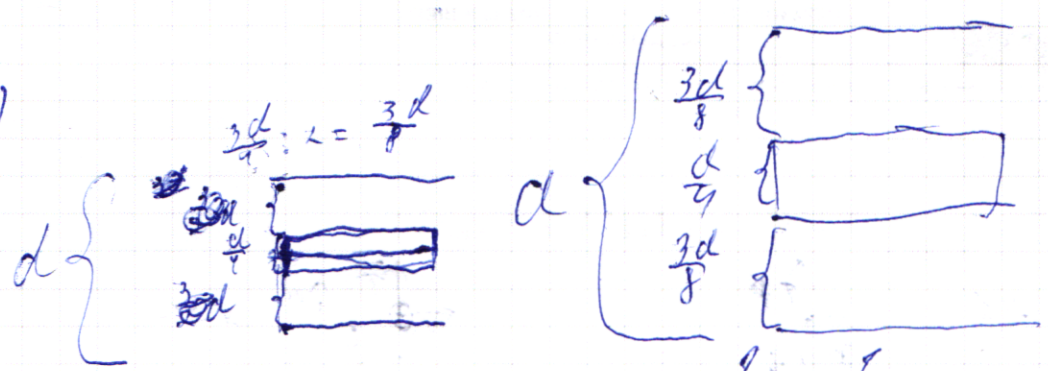 3d/4 : 2 = 3d/8
d
d/4
d
d
3d/8
d/4
3d/8